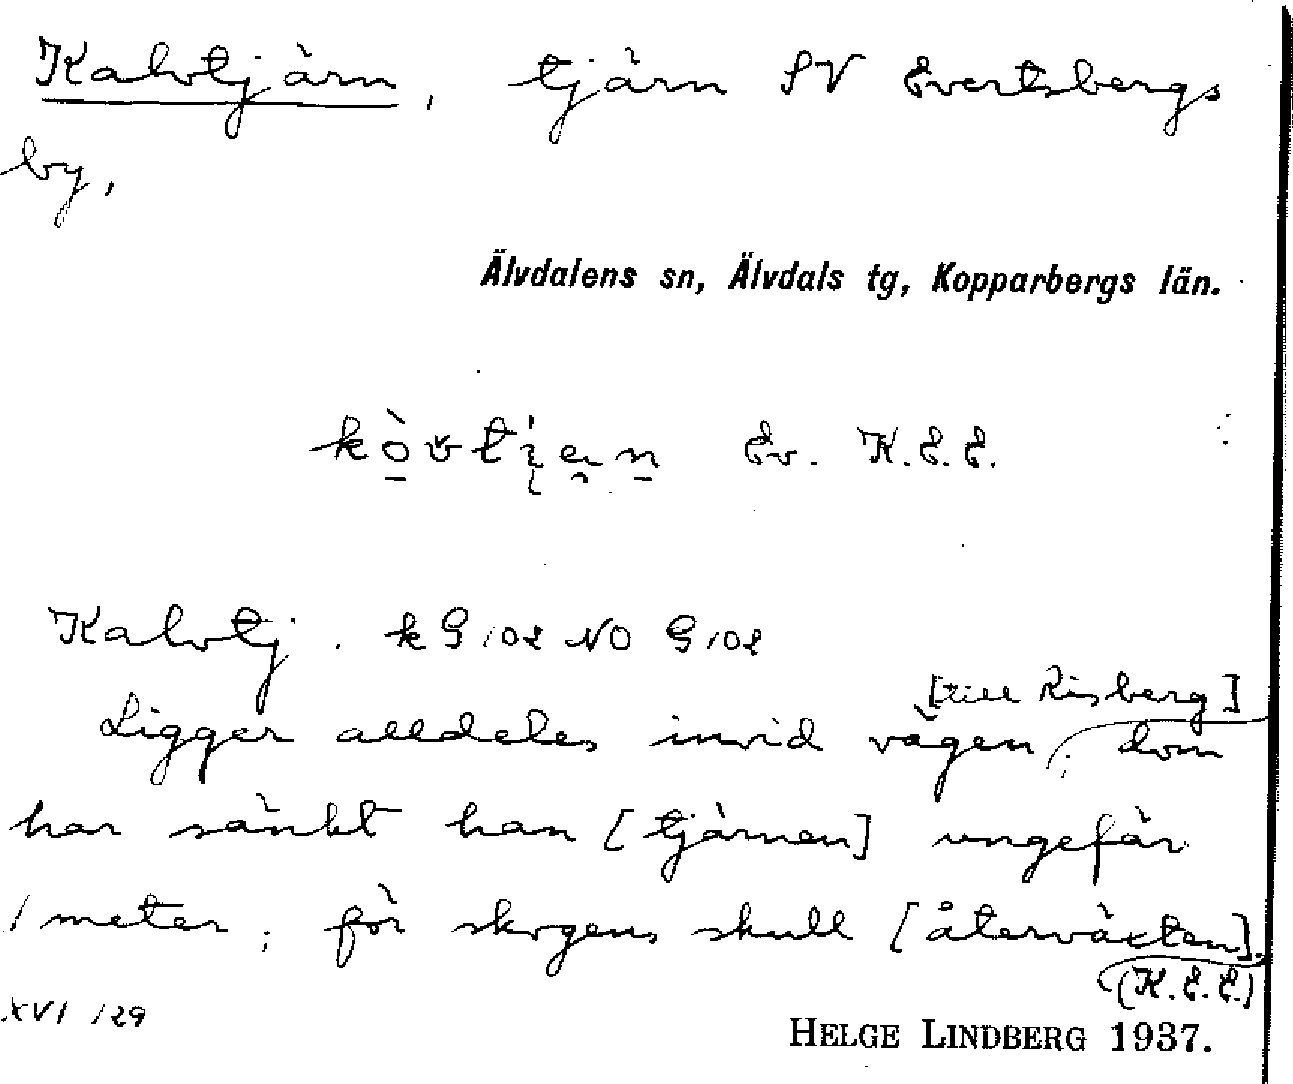 Kalvtjärn, tjärn SV Evertsbergs
by,
Älvdalens sn, Älvdals tg, Kopparbergs län.
Ev. K.E.E.
Kalvtj. k G 102 NO G 102
[till Risberg]
Ligger alldeles invid vägen; dom
har sänkt han [tjärnen] ungefär
1 meter; för skogens skull [återväxten].
(K.E.E.)
XVI 129
HELGE LINDBERG 1937.